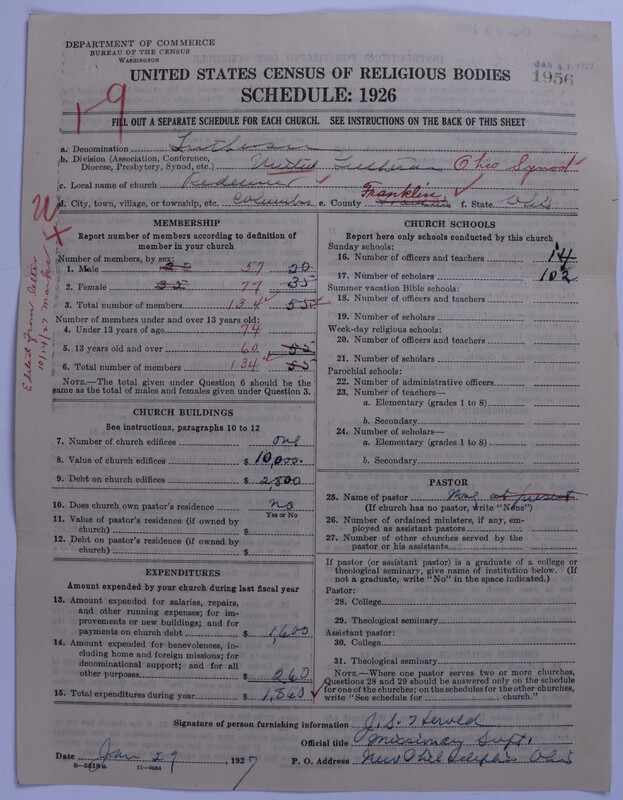 DEPARTMENT OF COMMERCE
BUREAU OF THE CENSUS
WASHINGTON
JAN 31 1927
1956
UNITED STATES CENSUS OF RELIGIOUS BODIES
SCHEDULE: 1926
1-9
FILL OUT A SEPARATE SCHEDULE FOR EACH CHURCH. SEE INSTRUCTIONS ON THE BACK OF THIS SHEET
a. Denomination Lutheran
b. Division (Association, Conference, Diocese, Presbytery, Synod, etc.) United Lutheran Ohio Synod
c. Local name of church Redeemer
d. City, town, village, or township, etc. Columbus e. County Franklin f. State Ohio
MEMBERSHIP
Report number of members according to definition of member in your church
Number of members, by sex:
1. Male 20 57 20
2. Female 35 77 35
3. Total number of members 134 55
Number of members under and over 13 years old:
4. Under 13 years of age 74
5. 13 years old and over 60 55
6. Total number of members 134 55
NOTE.—The total given under Question 6 should be the same as the total of males and females given under Question 3.
CHURCH BUILDINGS
See instructions, paragraphs 10 to 12
7. Number of church edifices one
8. Value of church edifices $ 10,000.
9. Debt on church edifices $ 2,800
10. Does church own pastor's residence no
Yes or No
11. Value of pastor's residence (if owned by church) $
12. Debt on pastor's residence (if owned by church) $
EXPENDITURES
Amount expended by your church during last fiscal year
13. Amount expended for salaries, repairs, and other running expenses; for improvements or new buildings; and for payments on church debt $ 1,600
14. Amount expended for benevolences, including home and foreign missions; for denominational support; and for all other purposes $ 260
15. Total expenditures during year $ 1,860
CHURCH SCHOOLS
Report here only schools conducted by this church
Sunday schools:
16. Number of officers and teachers 14
17. Number of scholars 102
Summer vacation Bible schools:
18. Number of officers and teachers
19. Number of scholars
Week-day religious schools:
20. Number of officers and teachers
21. Number of scholars
Parochial schools:
22. Number of administrative officers
23. Number of teachers—
a. Elementary (grades 1 to 8)
b. Secondary
24. Number of scholars—
a. Elementary (grades 1 to 8)
b. Secondary
PASTOR
25. Name of pastor None at present
(If church has no pastor, write "None")
26. Number of ordained ministers, if any, employed as assistant pastors
27. Number of other churches served by the pastor or his assistants
If pastor (or assistant pastor) is a graduate of a college or theological seminary, give name of institution below. (If not a graduate, write "No" in the space indicated.)
Pastor:
28. College
29. Theological seminary
Assistant pastor:
30. College
31. Theological seminary
NOTE.—Where one pastor serves two or more churches, Questions 28 and 29 should be answered only on the schedule for one of the churches; on the schedules for the other churches, write "See schedule for church."
Signature of person furnishing information J. S. Herold
Official title Missionary Supt.
Date Jan 29 1927 P. O. Address New Philadelphia Ohio
8-5518a 11-9084